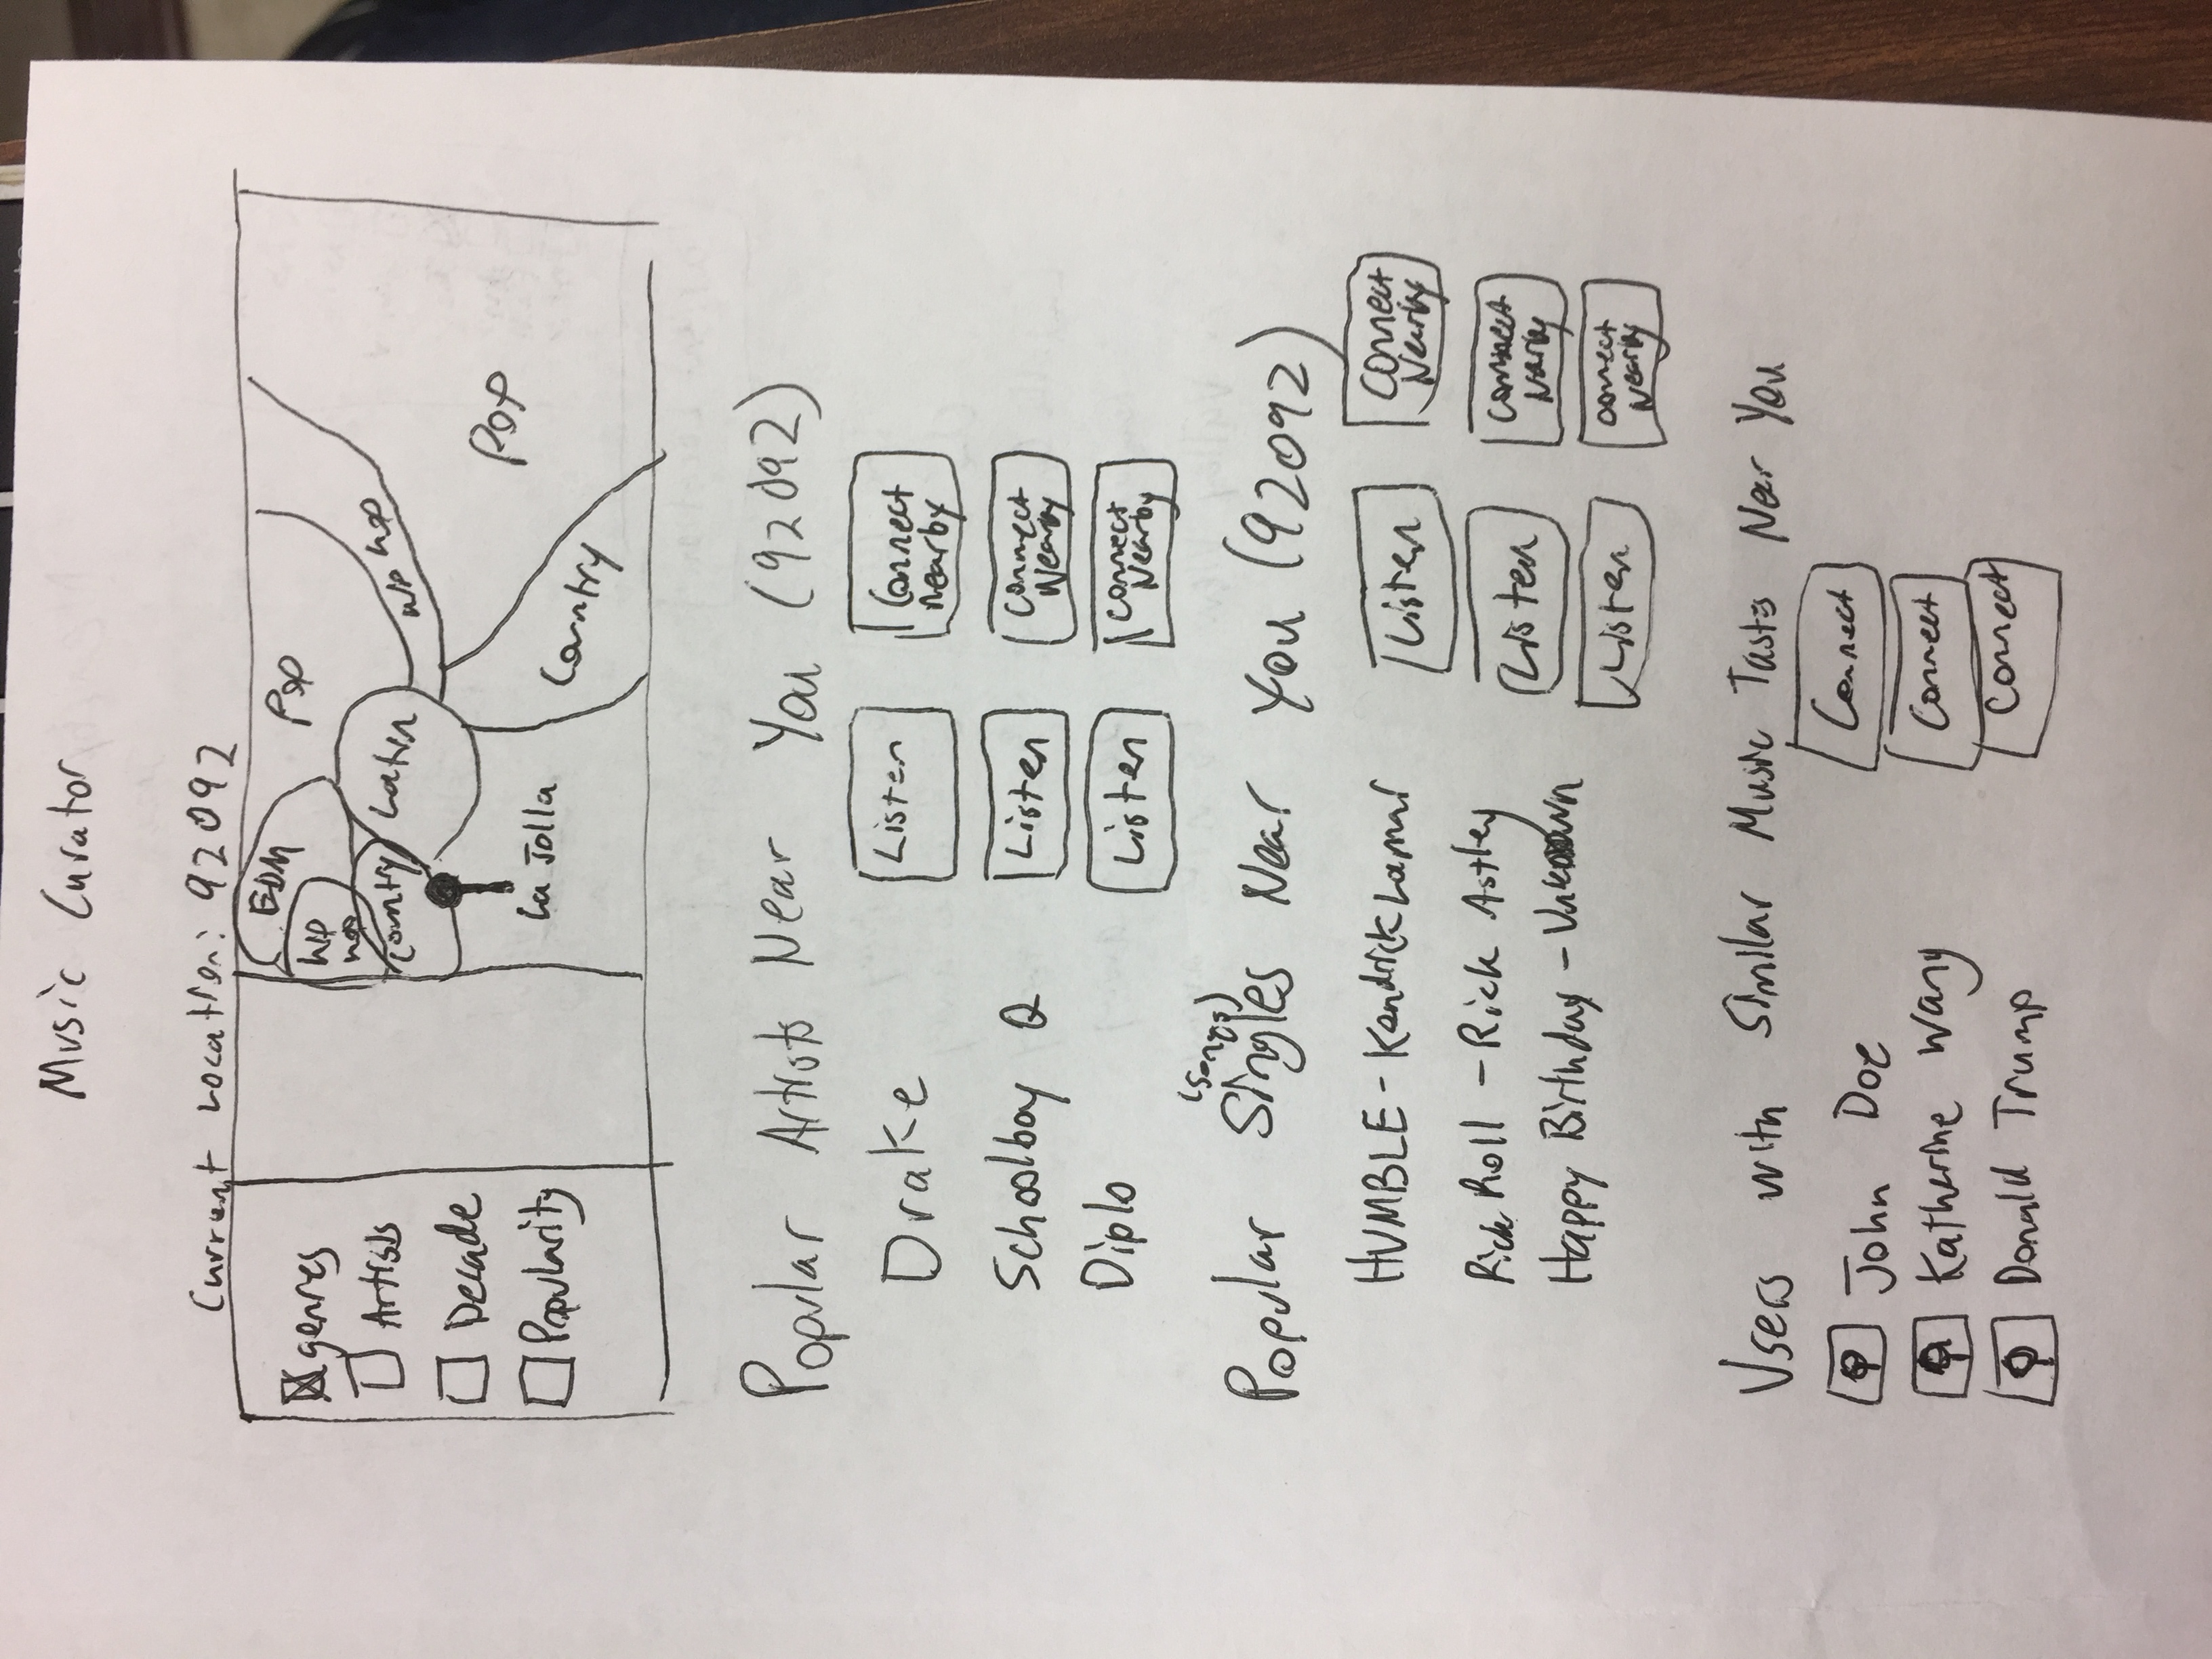 Music Curator
Current Location: 92092
genres
Artists
Decade
Popularity
EDM
Pop
Hip
Hop
Country
Latin
Hip Hop
La Jolla
Pop
Country
Popular Artists Near You (92092)
Drake Listen Connect Nearby
Schoolboy Q Listen Connect Nearby
Diplo Listen Connect Nearby
(songs)
Popular Singles Near You (92092)
HUMBLE - Kendrick Lamar Listen Connect Nearby
Rick Roll - Rick Astley Listen Connect Nearby
Happy Birthday - Unknown Listen Connect Nearby
Users with Similar Music Tastes Near You
John Doe Connect
Katherine Wang Connect
Donald Trump Connect